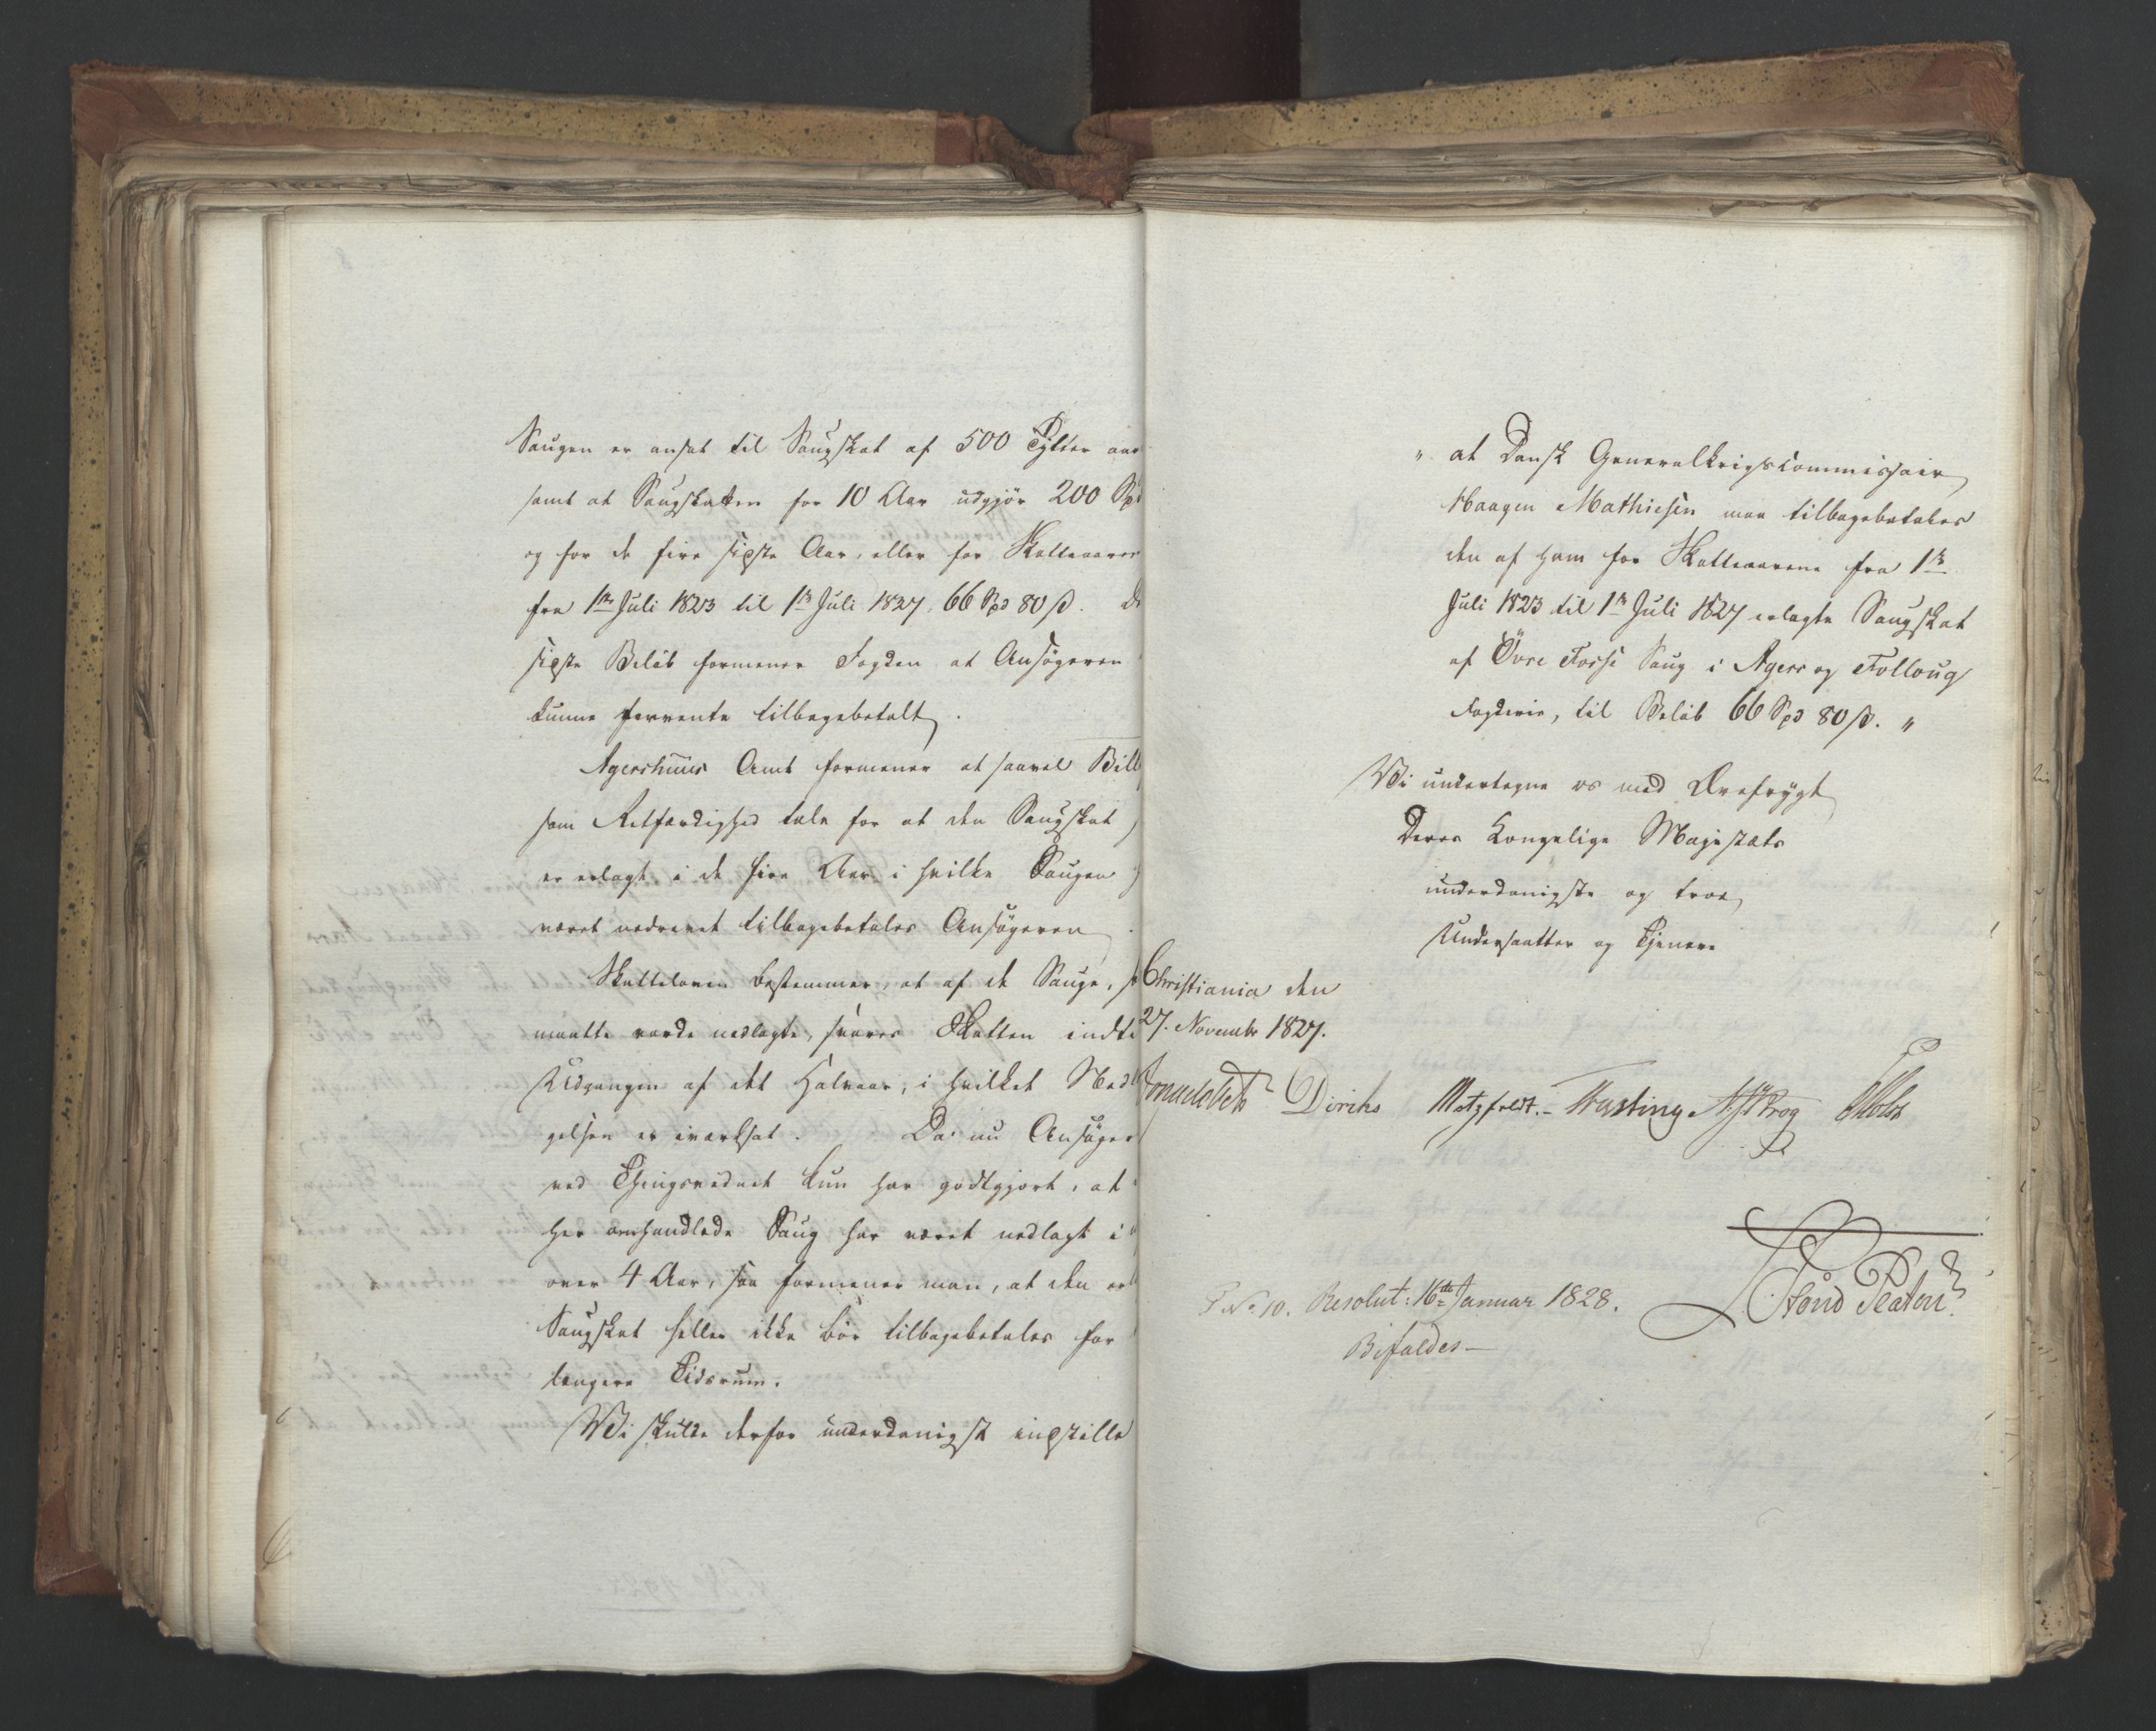 Saugen er ansat til Saugskat af 500 Tylter aar
samt at Saugskatten for 10 Aar udgjør 200 Spd
og for de fire sidste Aar, eller for Skatteaarene
fra 1ste Juli 1823 til 1ste Juli 1827, 66 Spd 80 ß. De
sidste Beløb formener Fogden at Ansøgeren
kunne forvente tilbagebetalt.
Agershuus Amt formener at saavel Bill
som Retfærdighed tale for at den Saugskat
er erlagt i de fire Aar i hvilke Saugen
været uedrevet tilbagebetales Ansøgeren
Skatteloven bestemmer, at af de Sauge, s
maatte vorde nedlagte, svares Skatten indti
Udgangen af det Halvaar, i hvilket Nedl
gelsen er iværksat. Da nu Ansøger
ved Thingsvidnet kun har godtgjort, at
her omhandlede Saug har været nedlagt i
over 4 Aar, saa formener man, at den er
Saugskat heller ikke bør tilbagebetales for
længere Tidsrum.
Vi skulde derfor underdanigst indstille
" at Dansk Generalkrigscommissair
Haagen Mathiesen maa tilbagebetales
den af ham for Skatteaarene fra 1ste
Juli 1823 til 1ste Juli 1827 erlagte Saugskat
af Övre Fosse Saug i Agers og Follougs
Fogderie, til Beløb 66 Spd 80 ß. "
Vi undertegne os med Ærefrygt
Deres Kongelige Majestæts
underdanigste og troe
Undersaatter og Tjenere
Christiania den
27. Novembr 1827.
Diriks Motzfeldt. Fasting Krog Holst
P No 10. Resolut: 16de Januar 1828.
Bifaldes